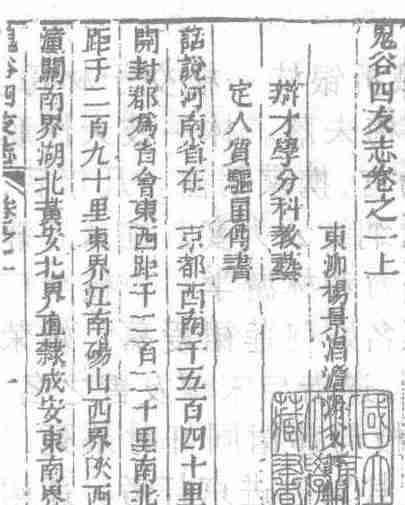 鬼谷四友志卷之一上
東泖楊景淐澹游父
辯才學分科教藝
定人質驅書
話說河南省在 京都西南千五百四十里
開封郡為省會東西距千二百二十里南北
距千二百九十里東界江南碭山西界陝西
潼關南界湖北黃安北界直隸成安東南界
鬼谷四友志 卷之一 一
國立
藏書